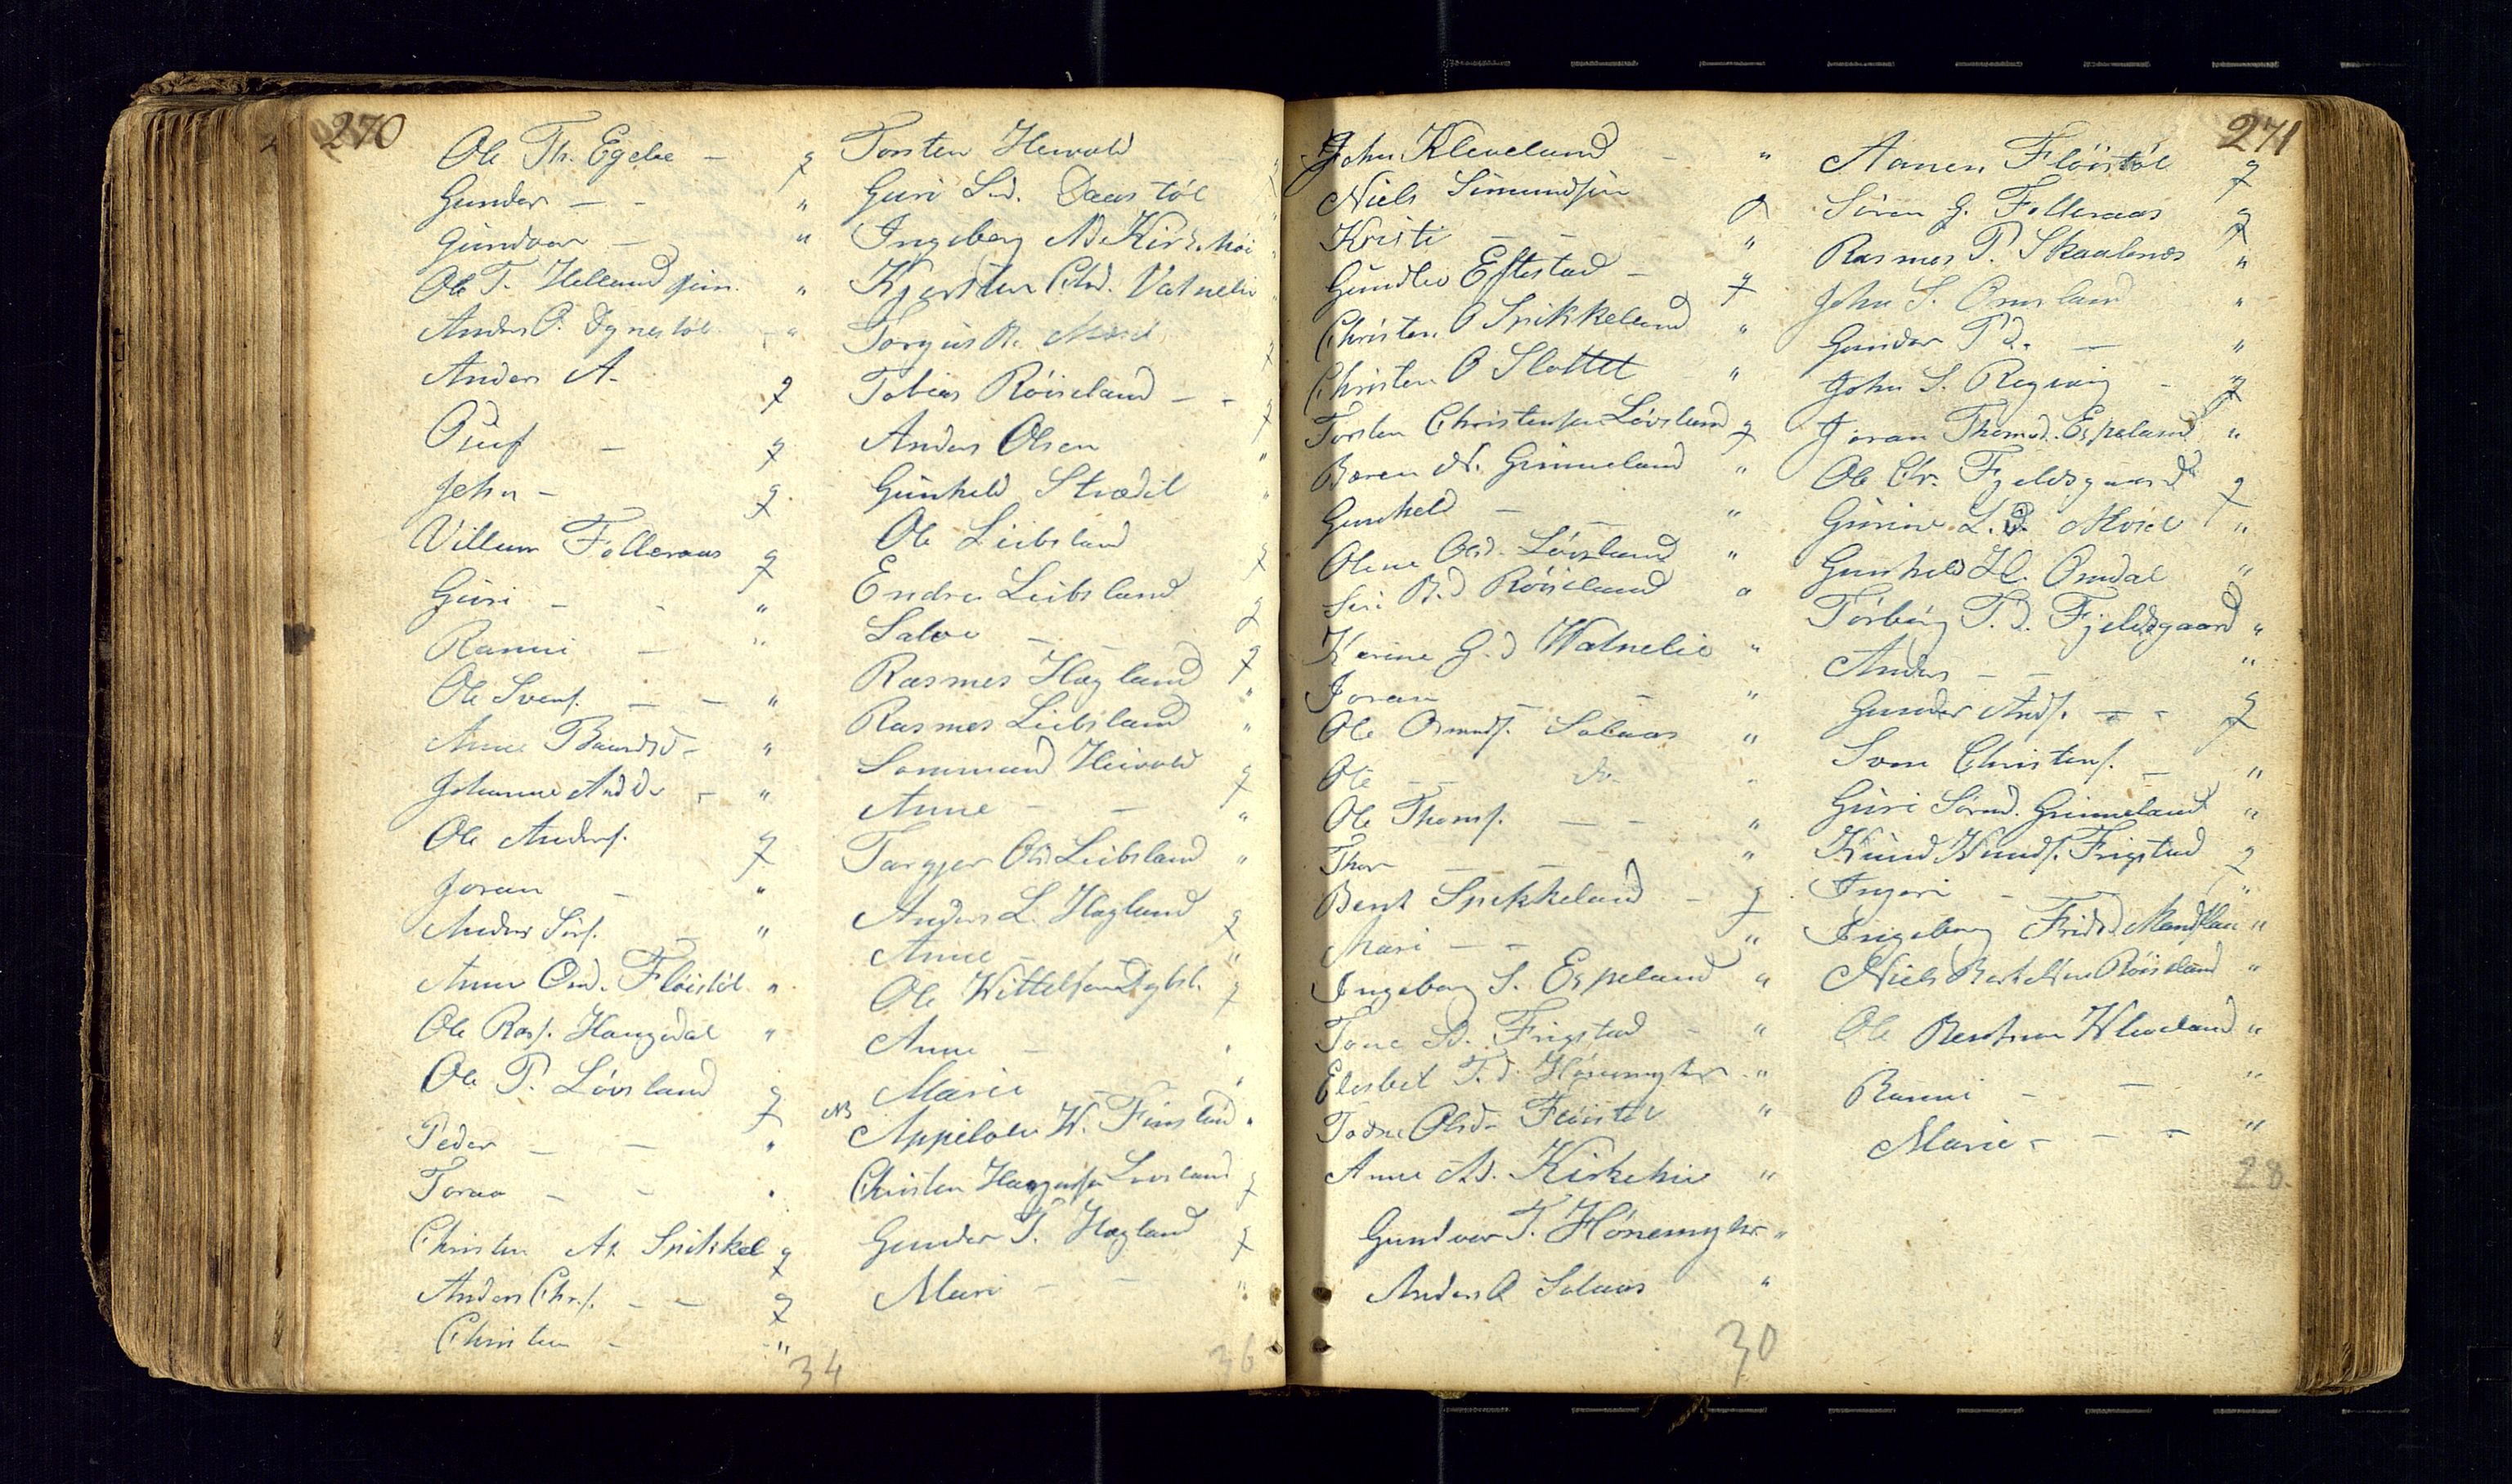 270
Ole Th. Egelie — g
Gunder — - "
Gundvor — "
Ole T. Helland jun. "
Anders O. Dynestöl - "
Anders A. g
Oluf — g
John - g
Villum Folleraas g
Guri - - "
Ranni — "
Ole Svens. — — "
Anne Baardsd - "
Johanne And.dr - "
Ole Anders. g
Joran - "
Anders Sörs. — "
Anne Ond. Flöistöl "
Ole Ras. Haugedal "
Ole P. Lövsland g
Peder — — "
Toras — - "
Christen At. Spikkel g
Anders Chr.s. - — g
Christen - "
34
Torsten Heivold "
Guri S.d. Daastöl "
Ingeborg Nd. Kirkehöi "
Kjersten Chd. Vatnelie "
Torgus R. Moseid g
Tobias Röiseland — - g
Anders Olsen "
Gunheld Strædet "
Ole Liebsland g
Endre Liebsland g
Salve — - g
Rasmes Hægland "
Rasmes Liebsland "
Sommund Heivold g
Anne - — "
Targjer Old Liebsland "
Anders L. Hægland g
Anne - "
Ole Kittelsen g
Anne — "
Marie — "
NB Appilone K. Finsland "
Christen Haagensen Lovsland g
Gunder T. Hægland g
Mari - - "
36
John Kleveland - "
Niels Simundsen g
Kristi — - "
Gundle Eftestad - g
Christen O Spikkeland "
Christen O Slottet "
Torsten Christensen Lövsland g
Boren N. Grimeland "
Gunheld - — "
Olene Olsd. Lövsland "
Siri B.d Röiseland "
Karine G.d Watnelie "
Joran - "
Ole Osmunds. Solaas "
Ole - - do "
Ole Thoms. — - "
Thor - - "
Bent Spikkeland - g
Mari — - "
Ingeborg S. Espeland "
Tone Sd. Frigstad - "
Elesbet T.d. Hönemyhr "
Todne Olsd. Flöistöl "
Anne Ad. Kirkehöi "
Gundvor T. Hönemyhr. "
Anders O Solaas "
30
271
Aanen Flöistöl g
Sören G. Folleraas g
Rasmes P. Skaalenes "
John S. Omsland "
Gunder P.d. — "
John S. Regevig - g
Joran Thomd. Espeland "
Ole Chr. Fjeldsgaard g
Gurine L.d. Moseid "
Gunheld H. Omdal "
Torborg T.d. Fjeldsgaard "
Anders - - "
Gunder Ands. — - g
Sven Christens. — "
Guri Sörnd. Grimeland "
Knud Knuds. Frigstad g
Ingeri - "
Ingeborg Frids.d. "
Niels Bertelsen Röiseland "
Ole Bentsen Kleveland "
Ranni - — "
Marie - - — "
28.